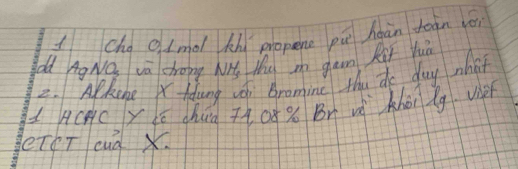 1 Cho 0,1 mol khí propene pứ hoàn toàn với
dd AgNO3 và trong NH3 thu m gam kết tủa
2. Alkene X t/dụng với Bromine thu đc duy nhất
1 HCHC Y có chứa 74,08% Br về khối lg. viết
CTCT của X.